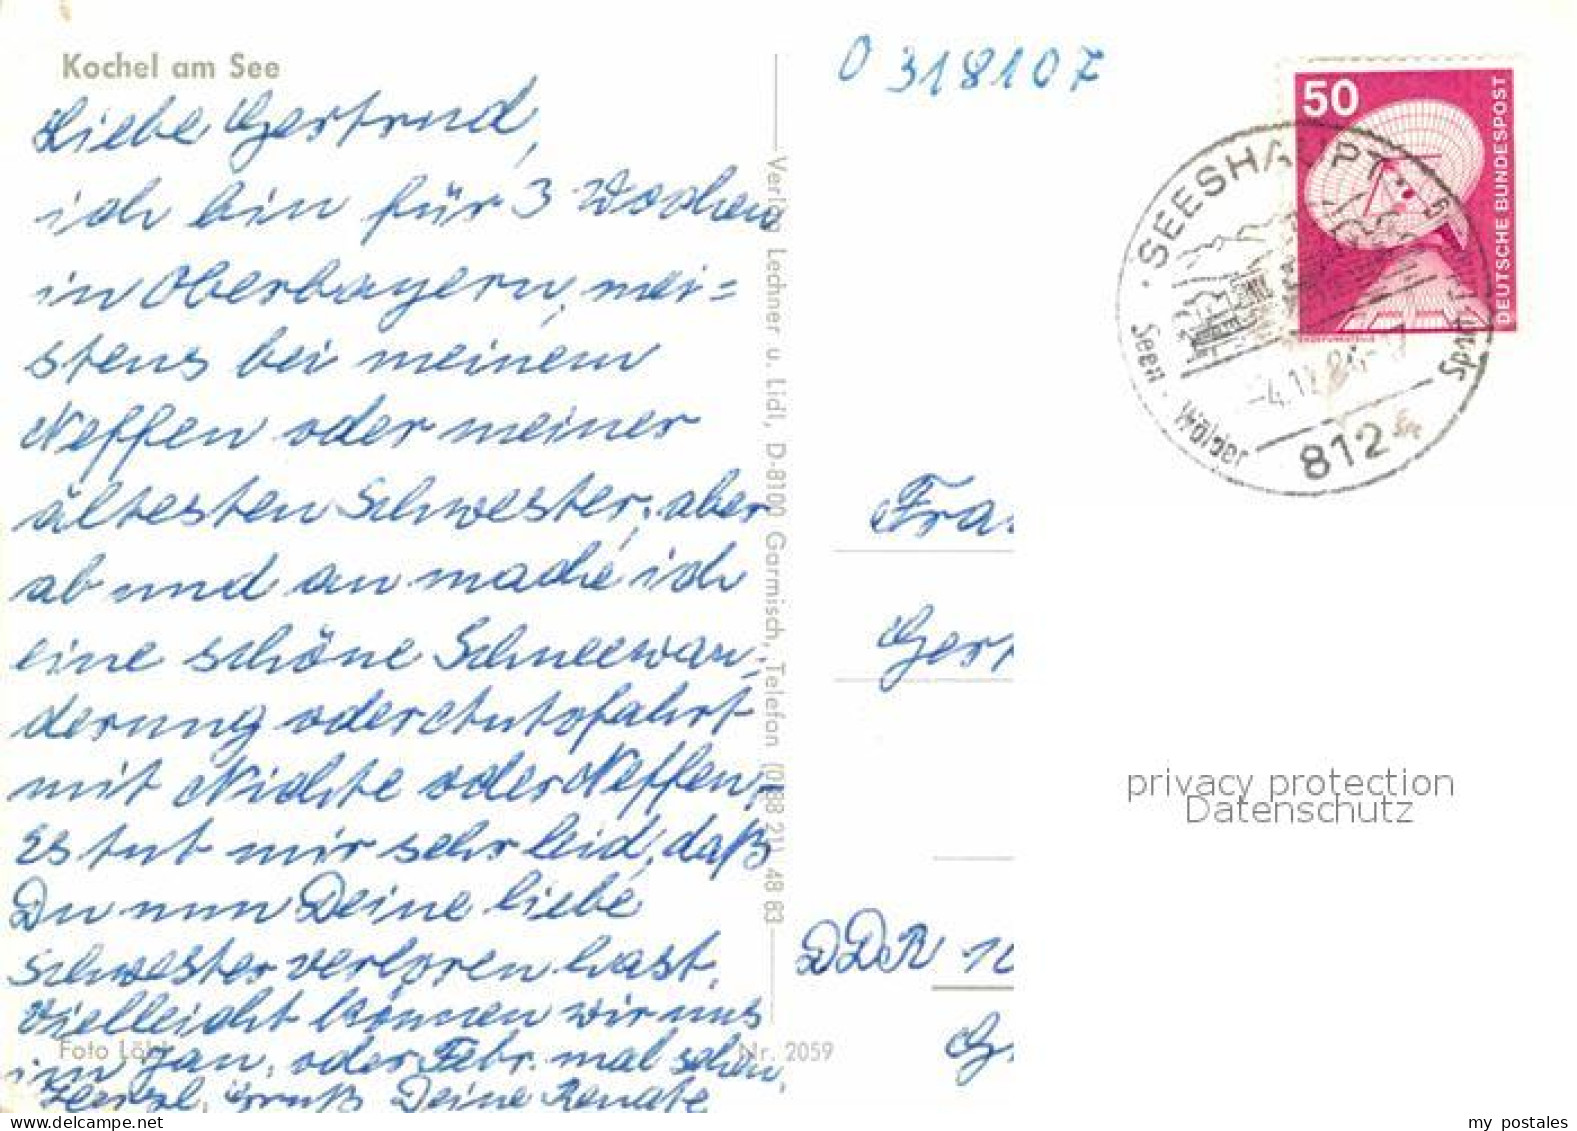 Kochel am See
Liebe Gertrud,
ich bin für 3 Wochen
in Oberbayern, mei=
stens bei meinem
Neffen oder meiner
ältesten Schwester, aber
ab und an mache ich
eine schöne Schneewan-
derung oder Autofahrt
mit Nichte oder Neffen.
Es tut mir sehr leid, daß
Du nun Deine liebe
Schwester verloren hast.
Vielleicht können wir uns
im Jan. oder Febr. mal sehen,
Herzl. Gruß Deine Renate
Foto
Nr. 2059
Verlag Lechner u. Lidl, D-8100 Garmisch, Telefon (0 88 21) 48 83
O 318107
50
DEUTSCHE BUNDESPOST
SEESHAUPT
Seen · Wälder
812
Fra
Ger
DDR 1
G
privacy protection
Datenschutz
my postales